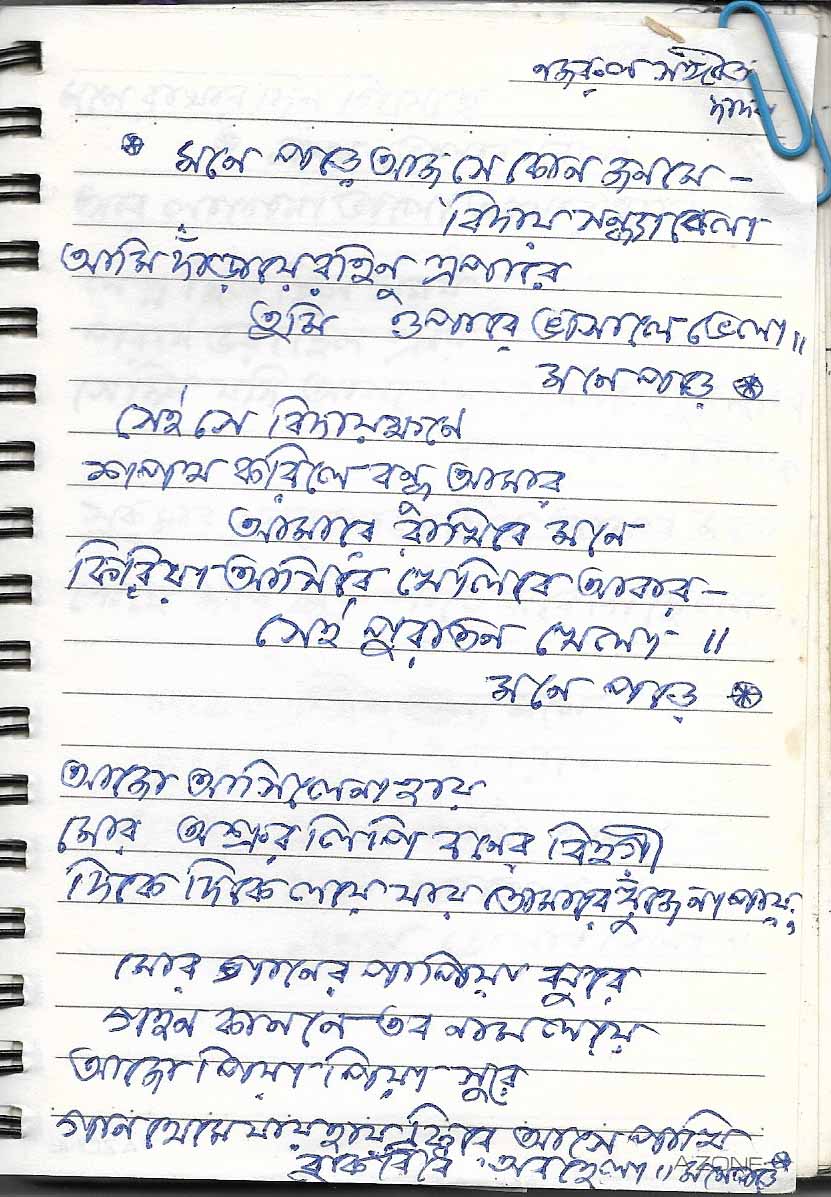 নজরুল সঙ্গীত
দাদরা
মনে পড়ে আজ সে কোন জনমে -
বিদায় সন্ধ্যাবেলা
আমি দাঁড়ায়ে রহিনু এপারে
তুমি ওপারে ভাসালে ভেলা ॥
মনে পড়ে
সেই সে বিদায়ক্ষনে
শপথ করিলে বন্ধু আমার
আমারে রাখিবে মনে
ফিরিয়া আসিবে খেলিবে আবার -
সেই পুরাতন খেলা ॥
মনে পড়ে
আজো আসিলেনা হায়
মোর অশ্রুর লিপি বনের বিহগী
দিকে দিকে লয়ে যায় তোমারে খুঁজে না পায়
মোর গানের পাপিয়া ঝুরে
গহন কাননে তব নাম লয়ে
আজো পিয়া পিয়া সুরে
গান থেমে যায় হায় ফিরে আসে পাখি
বুকে বিঁধে অবহেলা ॥ মনে পড়ে
AZONE